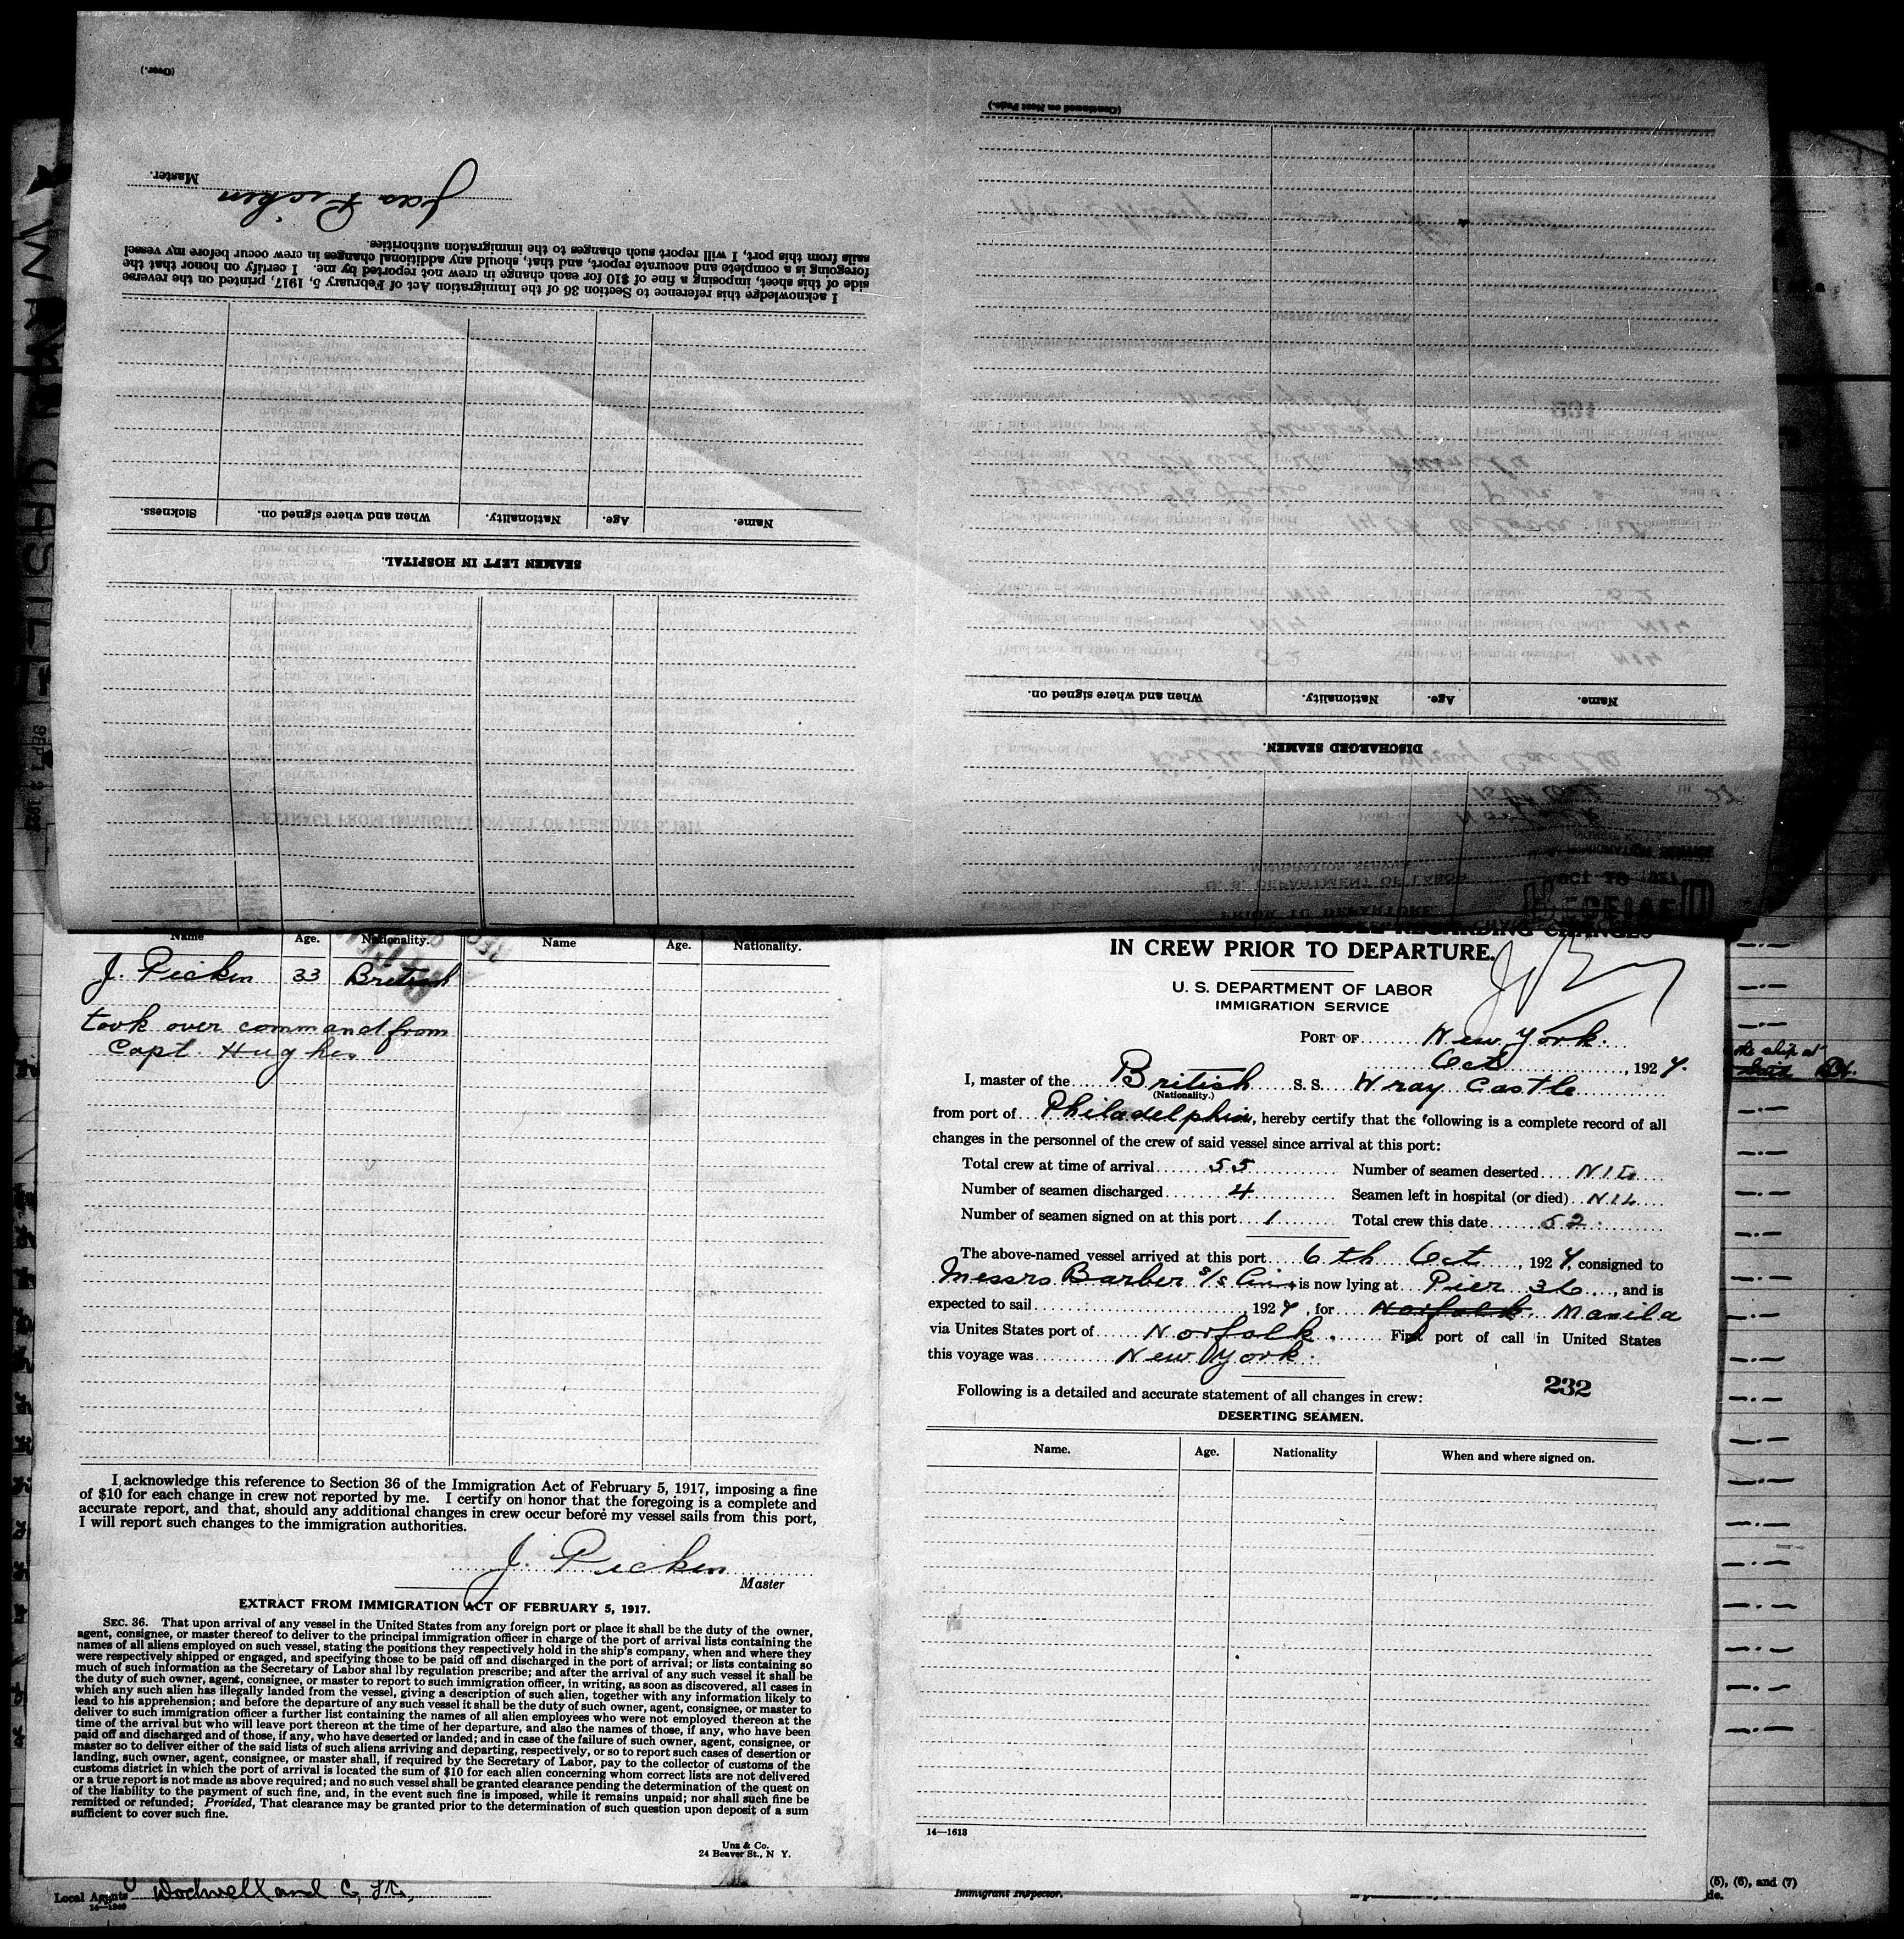 (Over.)
Master.
Jas Picken
I acknowledge this reference to Section 36 of the Immigration Act of February 5, 1917, printed on the reverse
side of this sheet, imposing a fine of $10 for each change in crew not reported by me. I certify on honor that the
foregoing is a complete and accurate report, and that, should any additional changes in crew occur before my vessel
sails from this port, I will report such changes to the immigration authorities.
Name. Age. Nationality. When and where signed on. Sickness.
SEAMEN LEFT IN HOSPITAL.
(Continued on Next Page.)
Name. Age. Nationality. When and where signed on.
DISCHARGED SEAMEN.
Name Age. Nationality. Name Age. Nationality.
J. Picken 33 British
took over command from
Capt. Hughes
I acknowledge this reference to Section 36 of the Immigration Act of February 5, 1917, imposing a fine
of $10 for each change in crew not reported by me. I certify on honor that the foregoing is a complete and
accurate report, and that, should any additional changes in crew occur before my vessel sails from this port,
I will report such changes to the immigration authorities.
J. Picken
Master
EXTRACT FROM IMMIGRATION ACT OF FEBRUARY 5, 1917.
SEC. 36. That upon arrival of any vessel in the United States from any foreign port or place it shall be the duty of the owner,
agent, consignee, or master thereof to deliver to the principal immigration officer in charge of the port of arrival lists containing the
names of all aliens employed on such vessel, stating the positions they respectively hold in the ship's company, when and where they
were respectively shipped or engaged, and specifying those to be paid off and discharged in the port of arrival; or lists containing so
much of such information as the Secretary of Labor shal lby regulation prescribe; and after the arrival of any such vessel it shall be
the duty of such owner, agent, consignee, or master to report to such immigration officer, in writing, as soon as discovered, all cases in
which any such alien has illegally landed from the vessel, giving a description of such alien, together with any information likely to
lead to his apprehension; and before the departure of any such vessel it shall be the duty of such owner, agent, consignee, or master to
deliver to such immigration officer a further list containing the names of all alien employees who were not employed thereon at the
time of the arrival but who will leave port thereon at the time of her departure, and also the names of those, if any, who have been
paid off and discharged and of those, if any, who have deserted or landed; and in case of the failure of such owner, agent, consignee, or
master so to deliver either of the said lists of such aliens arriving and departing, respectively, or so to report such cases of desertion or
landing, such owner, agent, consignee, or master shall, if required by the Secretary of Labor, pay to the collector of customs of the
customs district in which the port of arrival is located the sum of $10 for each alien concerning whom correct lists are not delivered
or a true report is not made as above required; and no such vessel shall be granted clearance pending the determination of the quest on
of the liability to the payment of such fine, and, in the event such fine is imposed, while it remains unpaid; nor shall such fine be
remitted or refunded; Provided, That clearance may be granted prior to the determination of such question upon deposit of a sum
sufficient to cover such fine.
Unz & Co.
24 Beaver St., N Y.
Local Agents Dodwell and Co Ltd
IN CREW PRIOR TO DEPARTURE.
U. S. DEPARTMENT OF LABOR
IMMIGRATION SERVICE
PORT OF New York.
Oct, 1927.
I, master of the British S. S. Wray Castle
(Nationality.)
from port of Philadelphia, hereby certify that the following is a complete record of all
changes in the personnel of the crew of said vessel since arrival at this port:
Total crew at time of arrival 55 Number of seamen deserted NIL
Number of seamen discharged 4 Seamen left in hospital (or died) NIL
Number of seamen signed on at this port 1 Total crew this date 52.
The above-named vessel arrived at this port 6th Oct, 1927, consigned to
Messrs Barber S/S Line, is now lying at Pier 36, and is
expected to sail, 1927, for Norfolk Manila
via Unites States port of Norfolk. First port of call in United States
this voyage was New York.
232
Following is a detailed and accurate statement of all changes in crew:
DESERTING SEAMEN.
Name. Age. Nationality When and where signed on.
14—1613
Immigrant Inspector.
(5), (6), and (7)